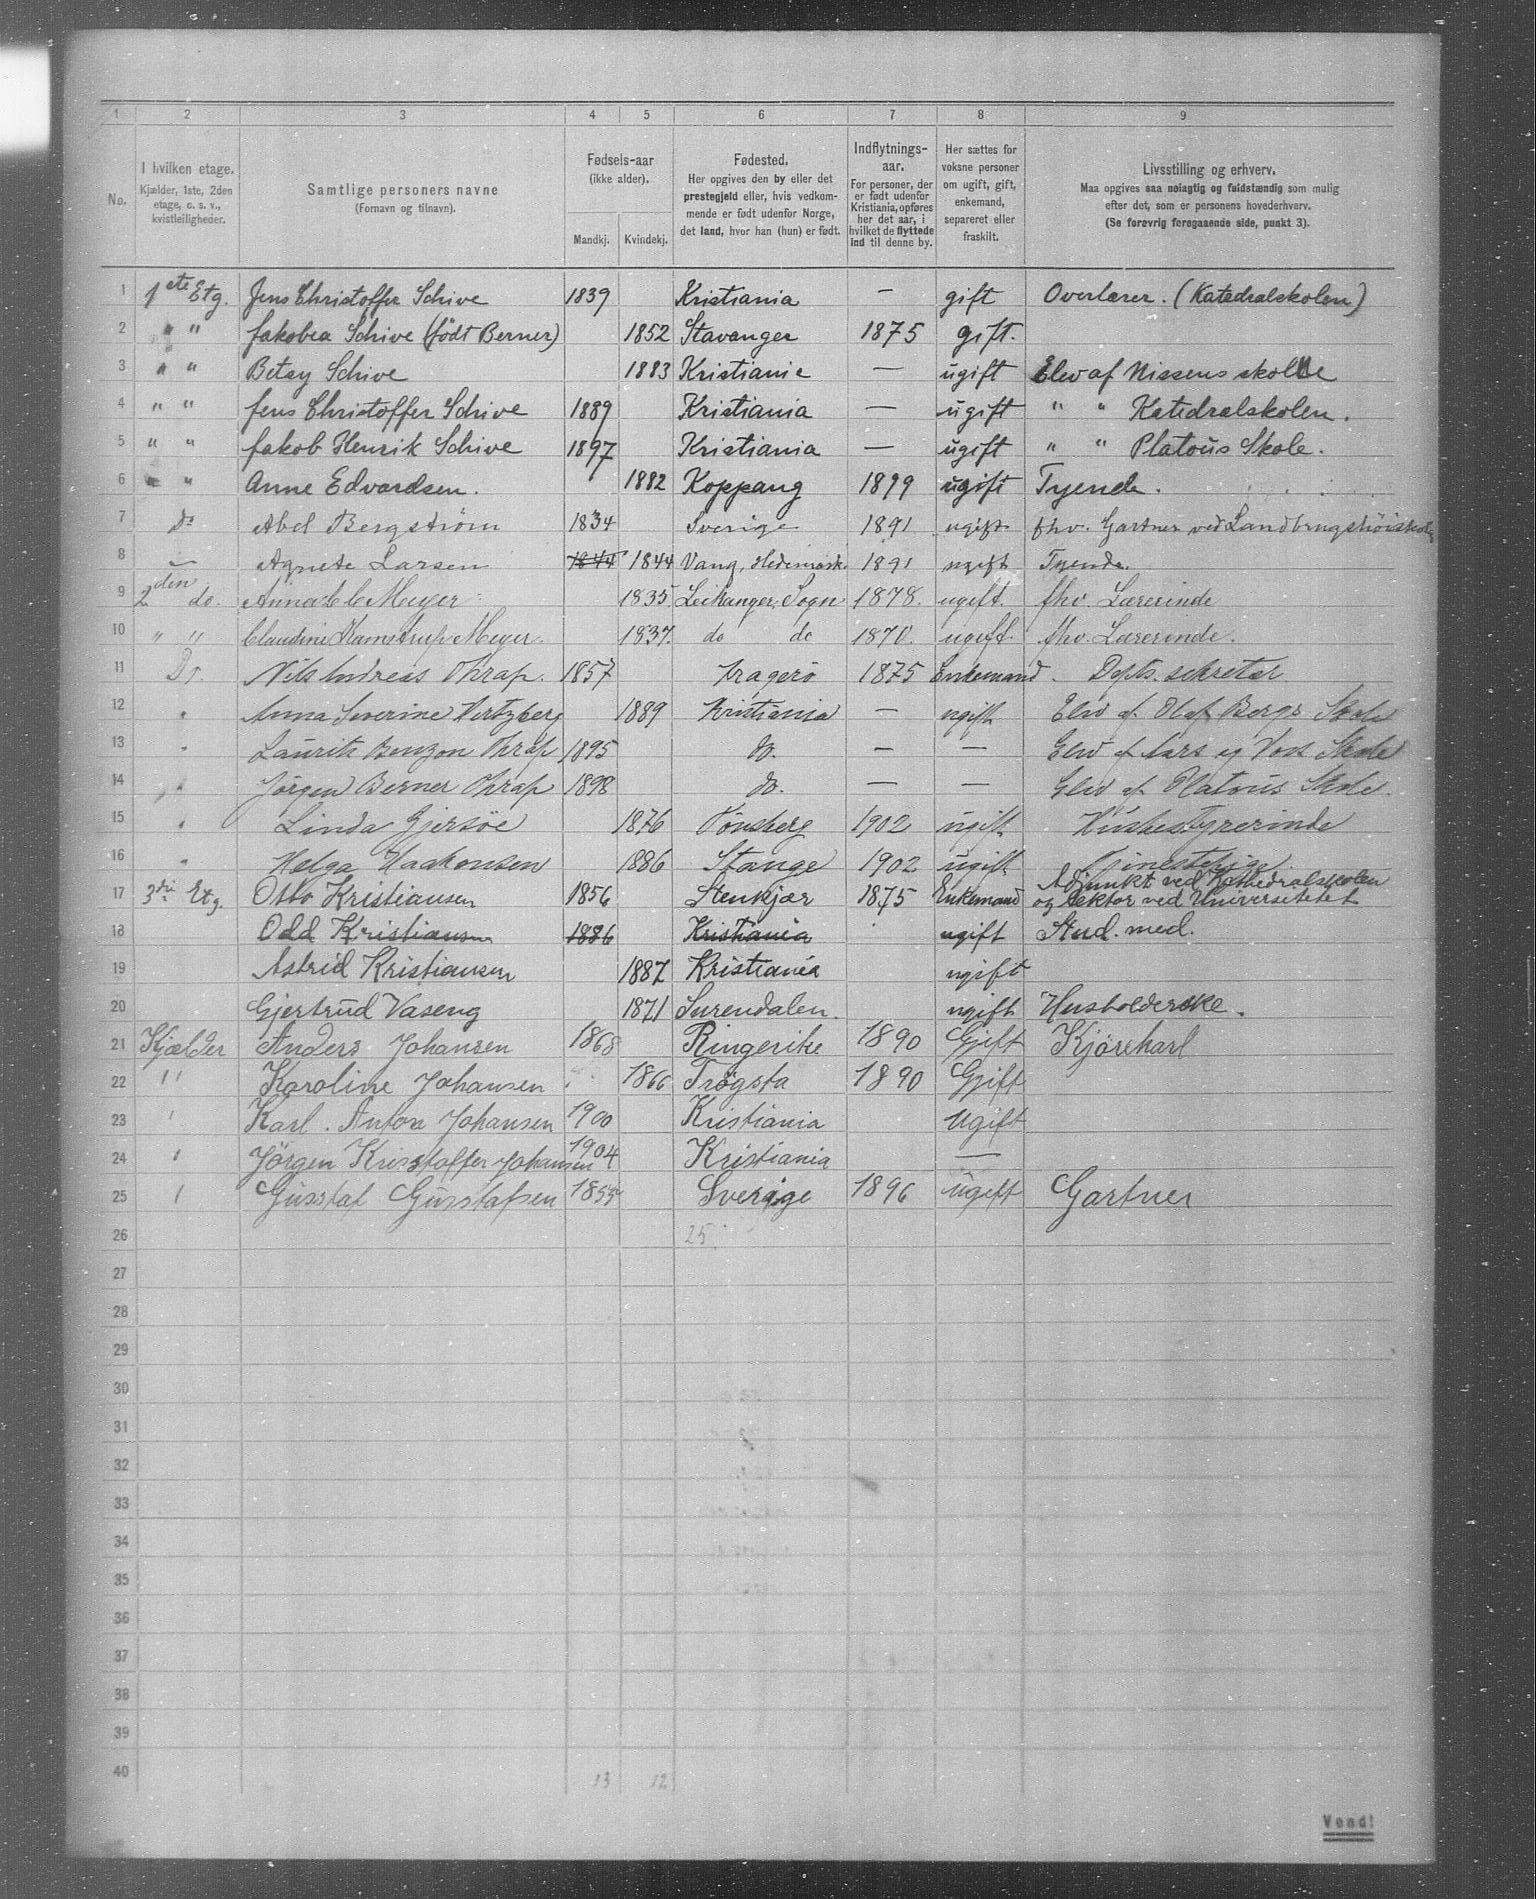 1 2 3 4 5 6 7 8 9
No.
I hvilken etage.
Kjælder, 1ste, 2den
etage, o. s. v.,
kvistleiligheder.
Samtlige personers navne
(Fornavn og tilnavn).
Fødsels-aar
(ikke alder).
Mandkj. Kvindekj.
Fødested.
Her opgives den by eller det
prestegjeld eller, hvis vedkom-
mende er født udenfor Norge,
det land, hvor han (hun) er født.
Indflytnings-
aar.
For personer, der
er født udenfor
Kristiania, opføres
her det aar, i
hvilket de flyttede
ind til denne by.
Her sættes for
voksne personer
om ugift, gift,
enkemand,
separeret eller
fraskilt.
Livsstilling og erhverv.
Maa opgives saa nøiagtig og fuldstændig som mulig
efter det, som er personens hovederhverv.
(Se forøvrig foregaaende side, punkt 3).
1 1ste Etg. Jens Christoffer Schive 1839 Kristiania — gift Overlærer. (Katedralskolen)
2 " " Jakobea Schive (født Berner) 1852 Stavanger 1875 gift.
3 " " Betsy Schive 1883 Kristiania — ugift Elev af Nissens skole
4 " " Jens Christoffer Schive 1889 Kristiania — ugift " " Katedralskolen.
5 " " Jakob Henrik Schive 1897 Kristiania — ugift " " Platoūs Skole.
6 " " Anne Edvardsen. 1882 Koppang 1899 ugift Tyende.
7 Do Abel Bergstrøm 1834 Sverige 1891 ugift fhv. Gartner ved Landbrugshöiskolen
8 — Agnete Larsen 1844 1844 Vang, Hedemark. 1891 ugift Tyende.
9 2den do. Anna Meyer 1835 Leikanger, Sogn 1878. ugift. fhv. Lærerinde
10 " " Claudine Kamstrup Meyer. 1837. do do 1870. ugift. fhv. Lærerinde.
11 Do Nils Andreas Thrap. 1857 Kragerö 1875 Enkemand. Depts. sekretær
12 " Anna Severine Hertzberg 1889 Kristiania — ugift Elev af Olaf Bergs Skole
13 " Laūritz Benzon Thrap 1895 do. — — Elev af Lars og Voss Skole
14 " Jørgen Berner Thrap 1898 do. — — Elev af Platoūs Skole.
15 " Linda Gjersöe 1876 Tönsberg 1902 ugift. Hūsbestyrerinde
16 " Helga Haakonsen 1886 Stange 1902 ugift. Tjenestepige
17 3die Etg. Otto Kristiansen 1856 Stenkjær 1875 Enkemand Adjunkt ved Kathedralskolen
og Lektor ved Universitetet
18 Odd Kristiansen 1886 Kristiania ugift Stud. med.
19 Astrid Kristiansen 1887 Kristiania ugift
20 Gjertrūd Vaseng 1871 Surendalen. ugift Husholderske.
21 Kjælder Anders Johansen 1868 Ringerike 1890 Gjift Kjörekarl
22 " Karoline Johansen 1866 Trøgsta 1890 Gjift
23 " Karl. Anton Johansen 1900 Kristiania Ugift
24 " Jörgen Kristoffer Johansen 1904 Kristiania —
25 " Gūsstaf Gūsstafsen 1855 Sverige 1896 ugift Gartner
26 25.
27
28
29
30
31
32
33
34
35
36
37
38
39
40 13 12
Vend!